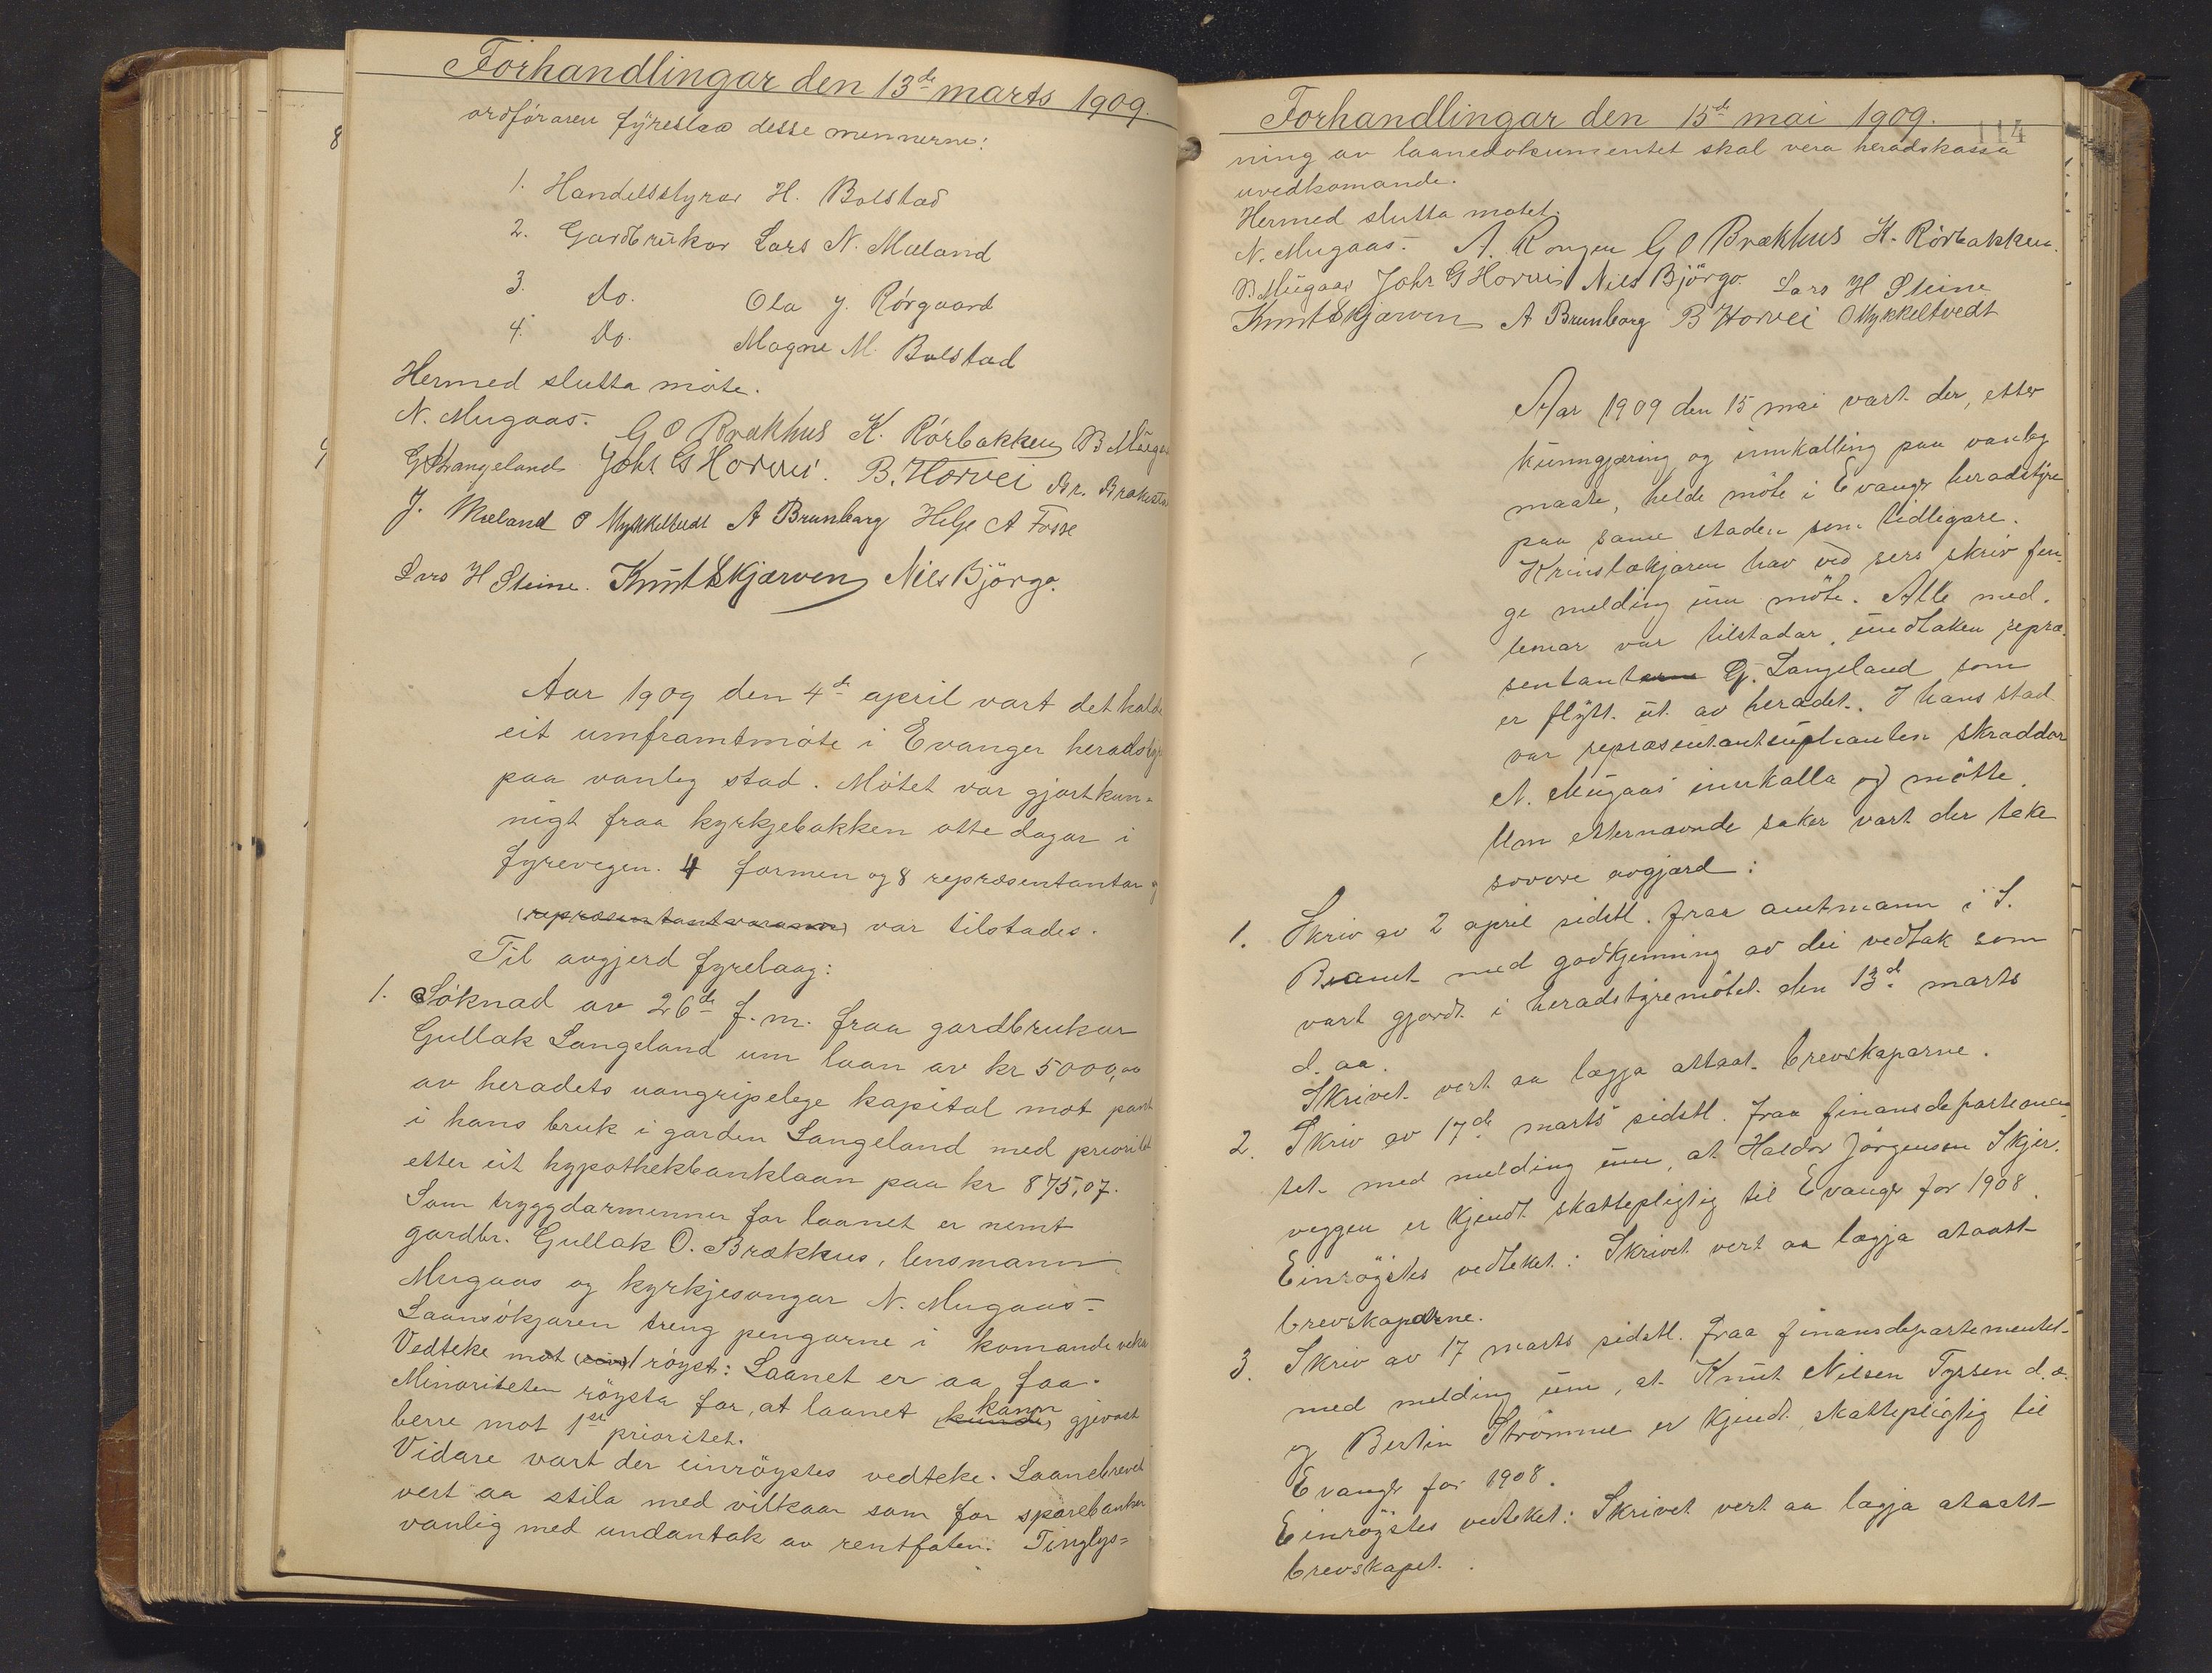 Forhandlingar den 13de marts 1909.
ordföraren fyreslaa desse mennerne:
1. Handelsstyrar H. Bolstad
2. Gardbrukar Lars N. Mæland
3. Do. Ola J. Rörgaard
4. Do. Magne M. Bolstad
Hermed slutta möte.
N. Mugaas. G O Brækhus K. Rörbakken B Mügaas
G Langeland Johs G Horvei. B. Horvei Br. Brakestad
J. Mæland O Mykkeltvedt A Brunborg Helje A Fosse
Lars H Steine. Knut Skjærven Nils Björgo.
Aar 1909 den 4de april vart det halde
eit umframtmöte i Evanger heradsty
paa vanleg stad. Mötet var gjort kun-
nigt fraa kyrkjebakken otte dagar i
fyrevegen. 4 formen og 8 repræsentantar og
(repræsentantvarasmn) var tilstades.
Til avgjerd fyrelaag:
1. Söknad av 26de f.m. fraa gardbrukar
Gullak Langeland um laan av kr 5000,00
av heradets uangripelege kapital mot pant
i hans bruk i garden Langeland med prioritet
etter eit hypothekbanklaan paa kr 875,07.
Som tryggdarmenner for laanet er nemt
gardbr. Gullak O. Brækkus, lensmann
Mugaas og kyrkjesongar N. Mugaas.
Laansökjaren treng pengarne i komande veka
Vedteke mot (ein) 1 röyst: Laanet er aa faa.
Minoriteten röysta for, at laanet (kunde) kann gjevast
berre mot 1ste prioritet.
Vidare vart der einröystes vedteke. Laanebrevet
vert aa stila med vilkaar som for sparebanken
vanlig med undantak av rentfoten. Tinglys-
Forhandlingar den 15de mai 1909.
114
ning av laanedokumentet skal vera heradskassa
uvedkomande.
Hermed slutta mötet.
N. Mugaas. A. Rongen G O Brækhus K. Rörbakken.
B Mügaas Johs G Horvei Nils Björgo. Lars H Steine
Knut Skjærven A Brunborg B Horvei O Mykkeltvedt
Aar 1909 den 15 mai vart der, etter
kunngjæring og innkalling paa vanleg
maate, helde möte i Evanger heradstyre
paa same staden som tidlegare.
Krinslækjaren hav ved sers skriv fen-
ge melding um möte. Alle med-
lemar var tilstadar, undtaken repræ-
sentanterne G. Langeland som
er flytt ut av heradet. I hans stad
var repræsentantsuplianten skræddar
A. Mugaas innkalla og mötte.
Um etternævnde saker vart der teke
sovore avgjærd:
1. Skriv av 2 april sidstl. fraa amtmann i S.
B.amt med godkjenning av dei vedtak som
vart gjordt i heradstyremötet den 13de marts
d. aa.
Skrivet vert aa lægja attaat brevskaparne.
2. Skriv av 17de marts sidstl. fraa finansdepartemen-
tet med melding um, at Haldor Jörgensen Skjer-
veggen er kjendt skattepligtig til Evanger for 1908.
Einröystes vedteket: Skrivet vert aa lægja ataatt
brevskaparne.
3. Skriv av 17 marts sidstl. fraa finansdepartementet
med melding um, at Knut Nilsen Tyssen d. e.
og Bertin Strömme er kjendt skattepligtig til
Evanger for 1908.
Einröystes vedteket: Skrivet vert aa lægja ataatt
brevskapet.